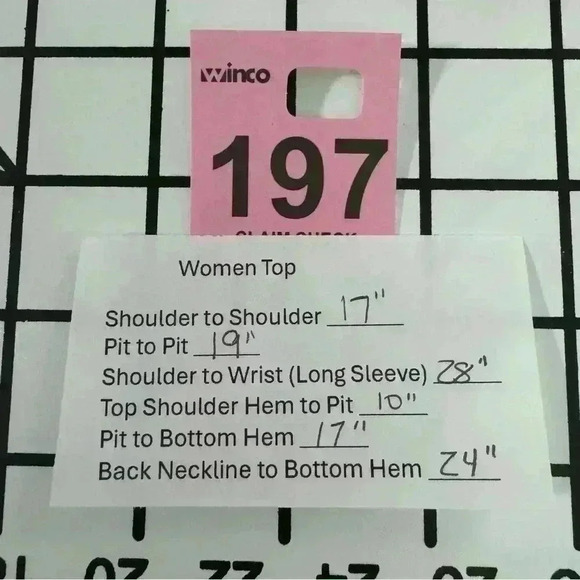 winco
197
CLAIM CHECK
Women Top
Shoulder to Shoulder 17"
Pit to Pit 19"
Shoulder to Wrist (Long Sleeve) 28"
Top Shoulder Hem to Pit 10"
Pit to Bottom Hem 17"
Back Neckline to Bottom Hem 24"